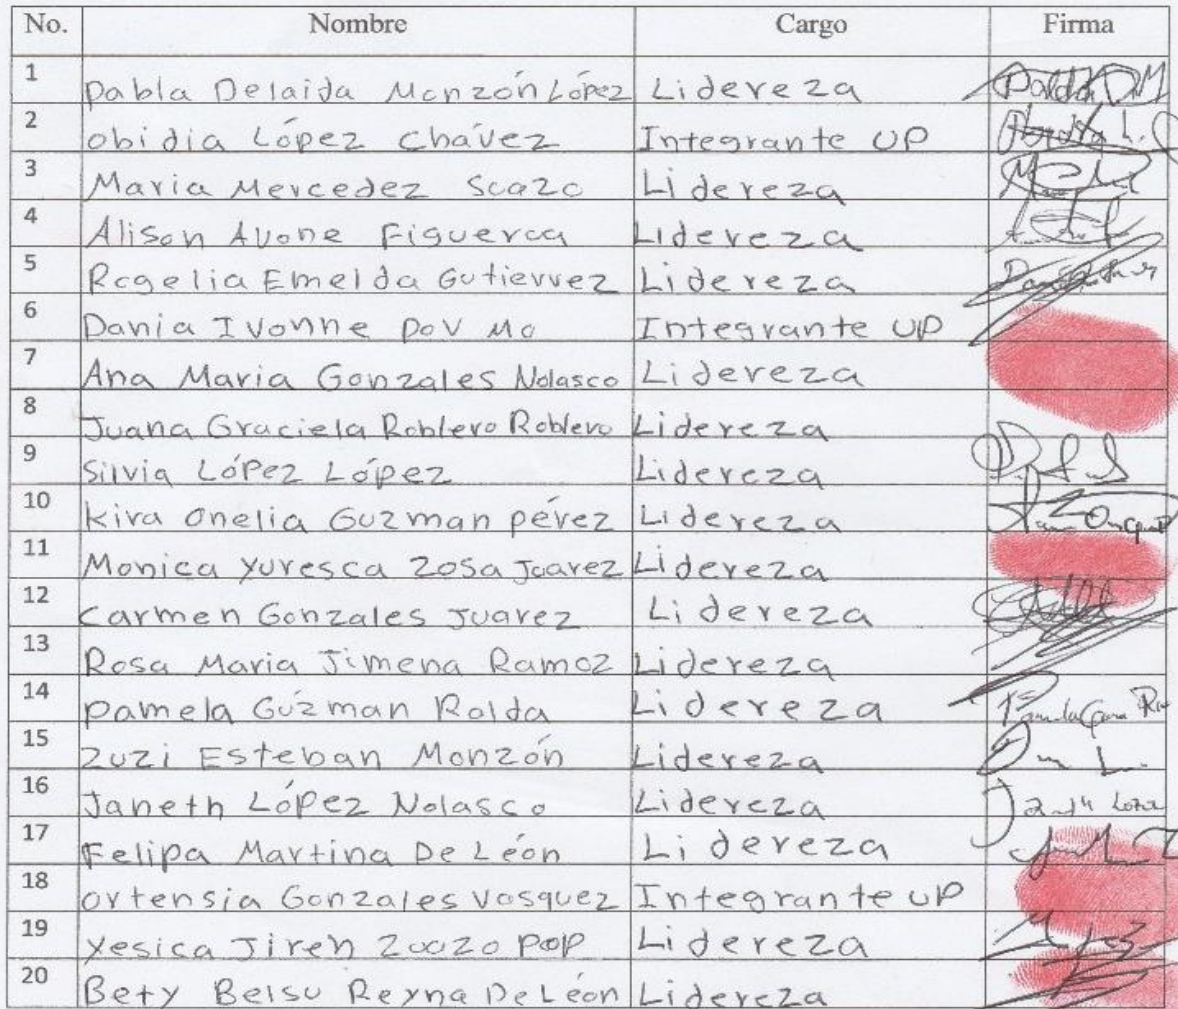 No. Nombre Cargo Firma
1 Pabla Delaida Monzón López Lidereza
2 obidia López Chávez Integrante UP
3 Maria Mercedez Lidereza
4 Alison Avone Figueroa Lidereza
5 Rogelia Emelda Gutierrez Lidereza
6 Dania Ivonne Integrante UP
7 Ana Maria Gonzales Nolasco Lidereza
8 Juana Graciela Roblero Roblero Lidereza
9 Silvia López López Lidereza
10 Kira Onelia Guzman pérez Lidereza
11 Monica Yuresca Zosa Juarez Lidereza
12 Carmen Gonzales Juarez Lidereza
13 Rosa Maria Jimena Ramoz Lidereza
14 Pamela Gúzman Rolda Lidereza
15 Zuzi Esteban Monzón Lidereza
16 Janeth López Nolasco Lidereza
17 Felipa Martina De León Lidereza
18 Ortensia Gonzales Vasquez Integrante UP
19 Yesica Jireh POP Lidereza
20 Bety Belsu Reyna De León Lidereza